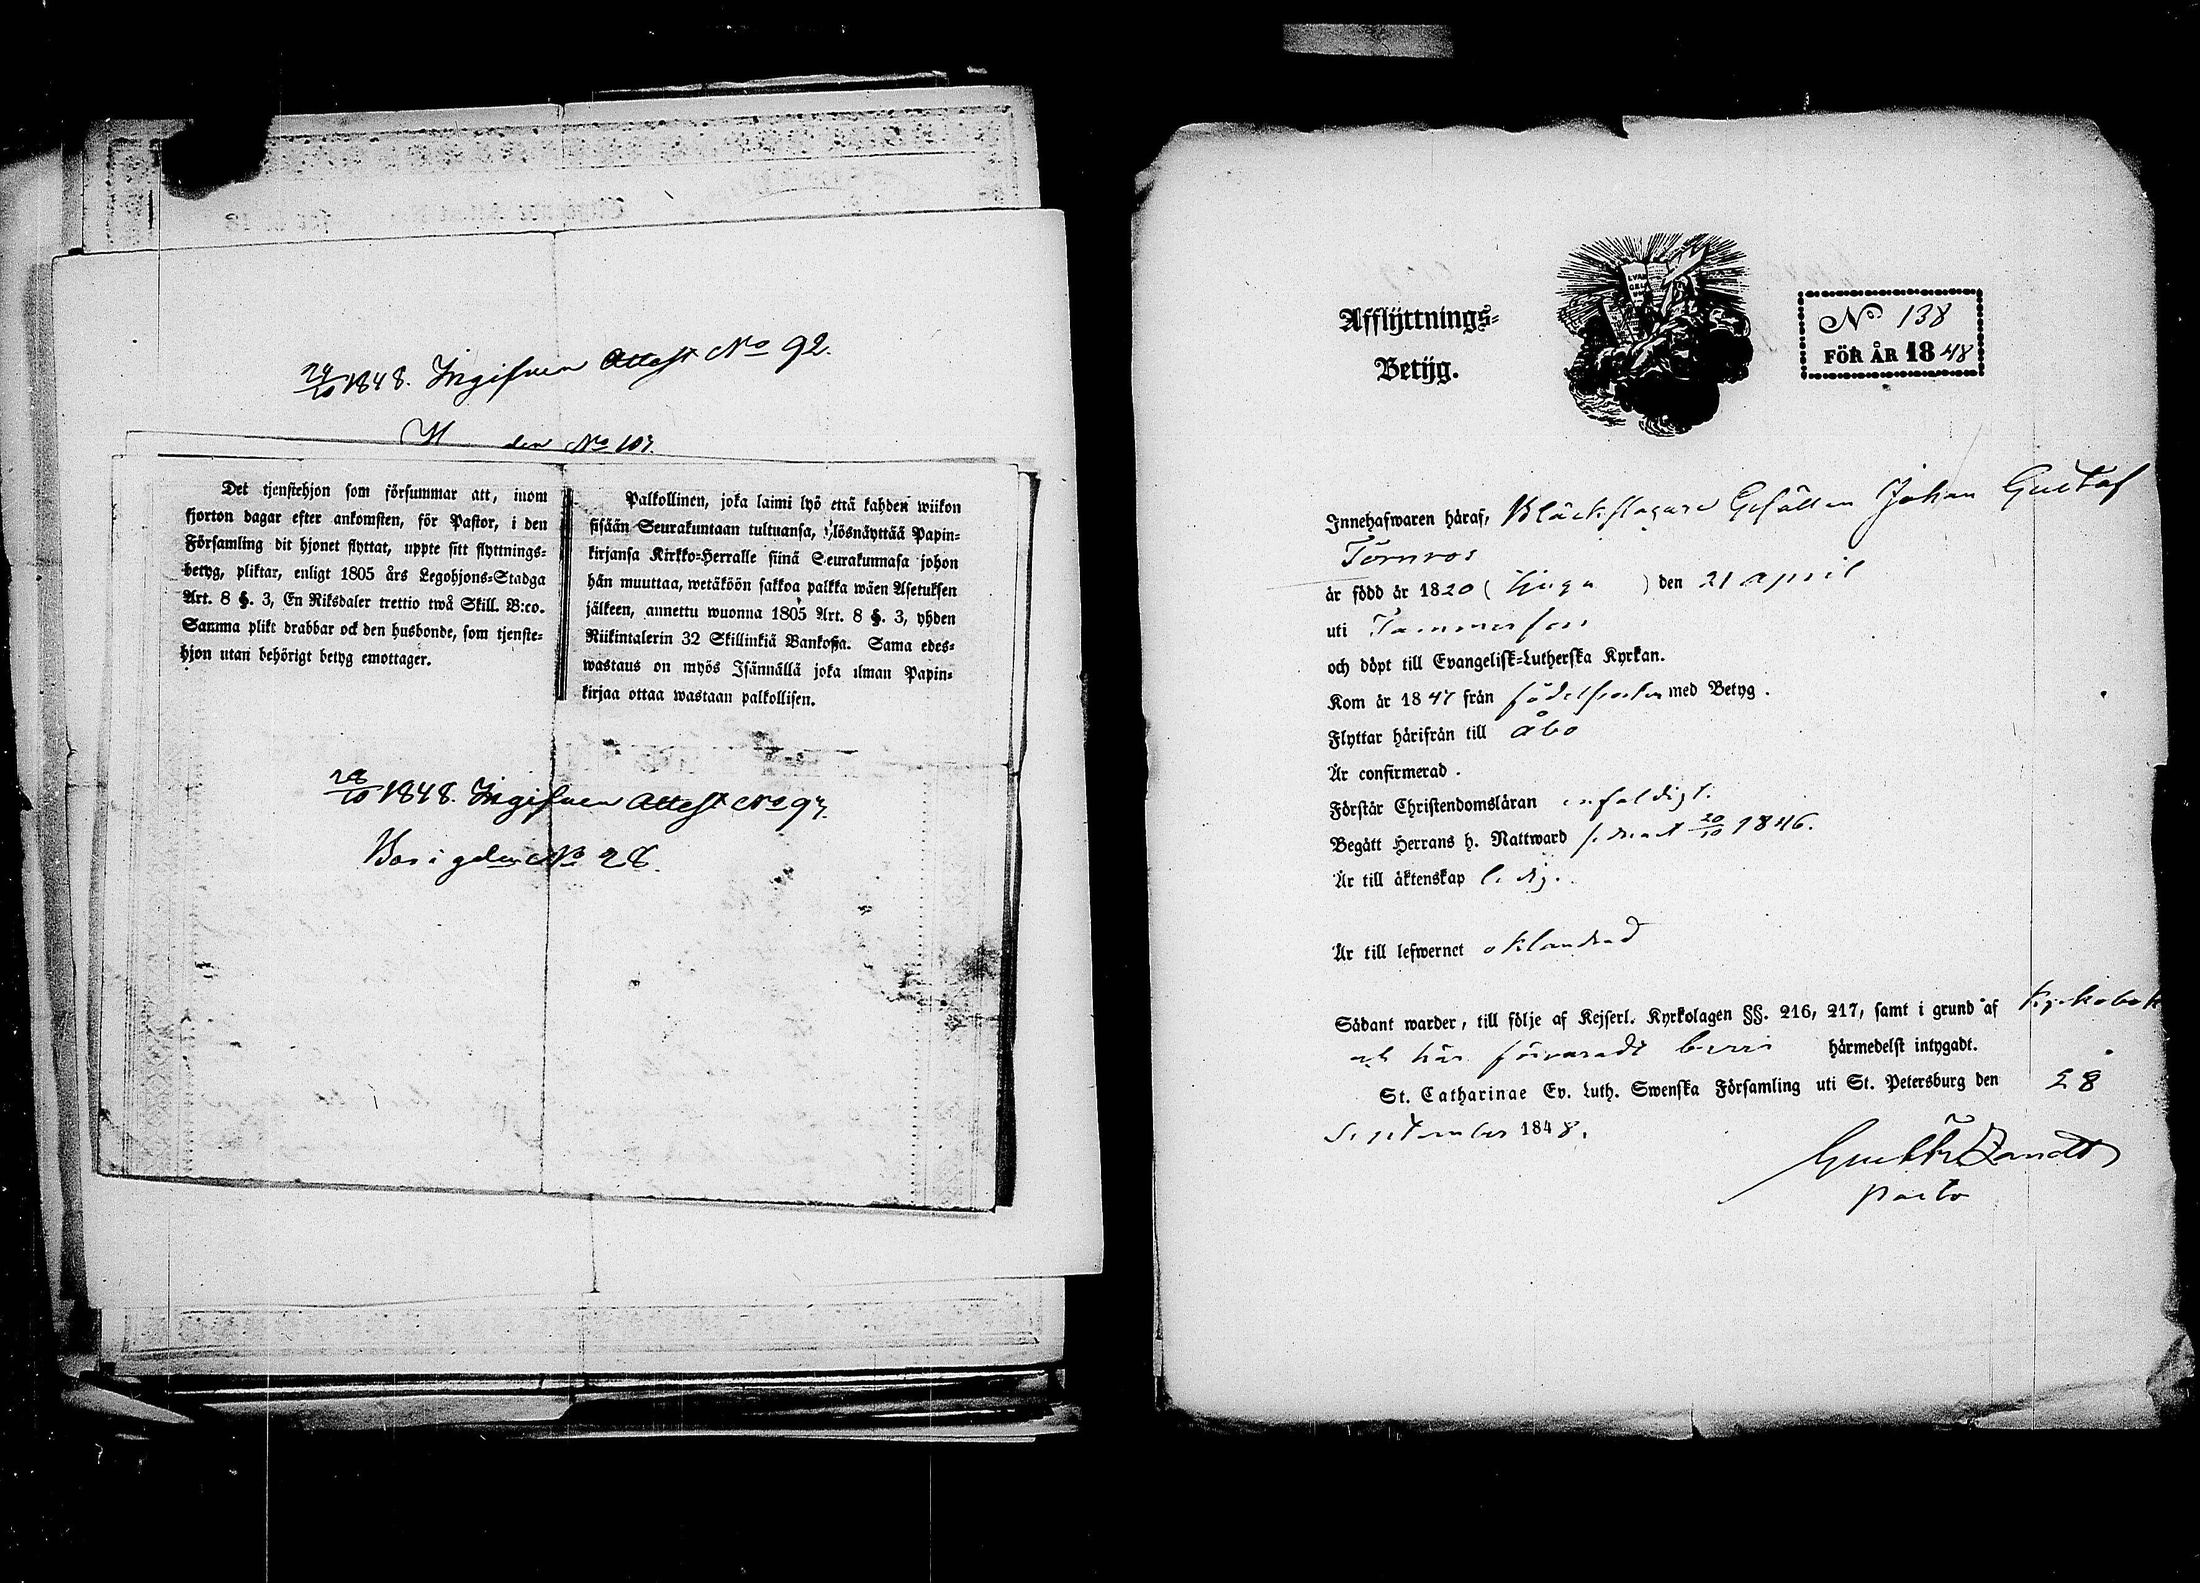 24/10 1848. Ingifven Attest No 92.
den No 107.
Det tjenstehjon som försummar att, inom
fjorton dagar efter ankomsten, för Pastor, i den
Församling dit hjonet flyttat, uppte sitt flyttnings=
betyg, pliktar, enligt 1805 års Legohjons=Stadga
Art. 8 §. 3, En Riksdaler trettio twå Skill. B:co.
Samma plikt drabbar ock den husbonde, som tjenste=
hjon utan behörigt betyg emottager.
Palkollinen, joka laimi lyö että kahden wiikon
sisään Seurakuntaan tultuansa, ylösnäyttää Papin=
kirjansa Kirkko=Herralle siinä Seurakunnasa johon
hän muuttaa, wetäköön sakkoa palkka wäen Asetuksen
jälkeen, annettu wuonna 1805 Art. 8 §. 3, yhden
Riikintalerin 32 Skillinkiä Bankossa. Sama edes=
wastaus on myös Isännällä joka ilman Papin=
kirjaa ottaa wastaan palkollisen.
28/10 1848. Ingifven Attest No 97.
No 28.
Afflÿttnings=
Betÿg.
No. 138
FÖR ÅR 1848
Innehafwaren häraf, Bläckslagare Gesällen Johan Gustaf
Törnros
är född år 1820 (tjugu) den 21 april
uti Tammerfors
och döpt till Evangelisk=Lutherska Kyrkan.
Kom år 1847 från födelseorten med Betyg.
Flyttar härifrån till Åbo
Är confirmerad.
Förstår Christendomsläran enfaldigt.
Begått Herrans h. Nattward senast 20/10 1846.
Är till äktenskap ledig.
Är till lefwernet oklandrad
Sådant warder, till följe af Kejserl. Kyrkolagen §§. 216, 217, samt i grund af Kyrkobok
och här förvaradt bevis härmedelst intygadt.
St. Catharinae Ev. Luth. Swenska Församling uti St. Petersburg den 28
September 1848.
Pastor